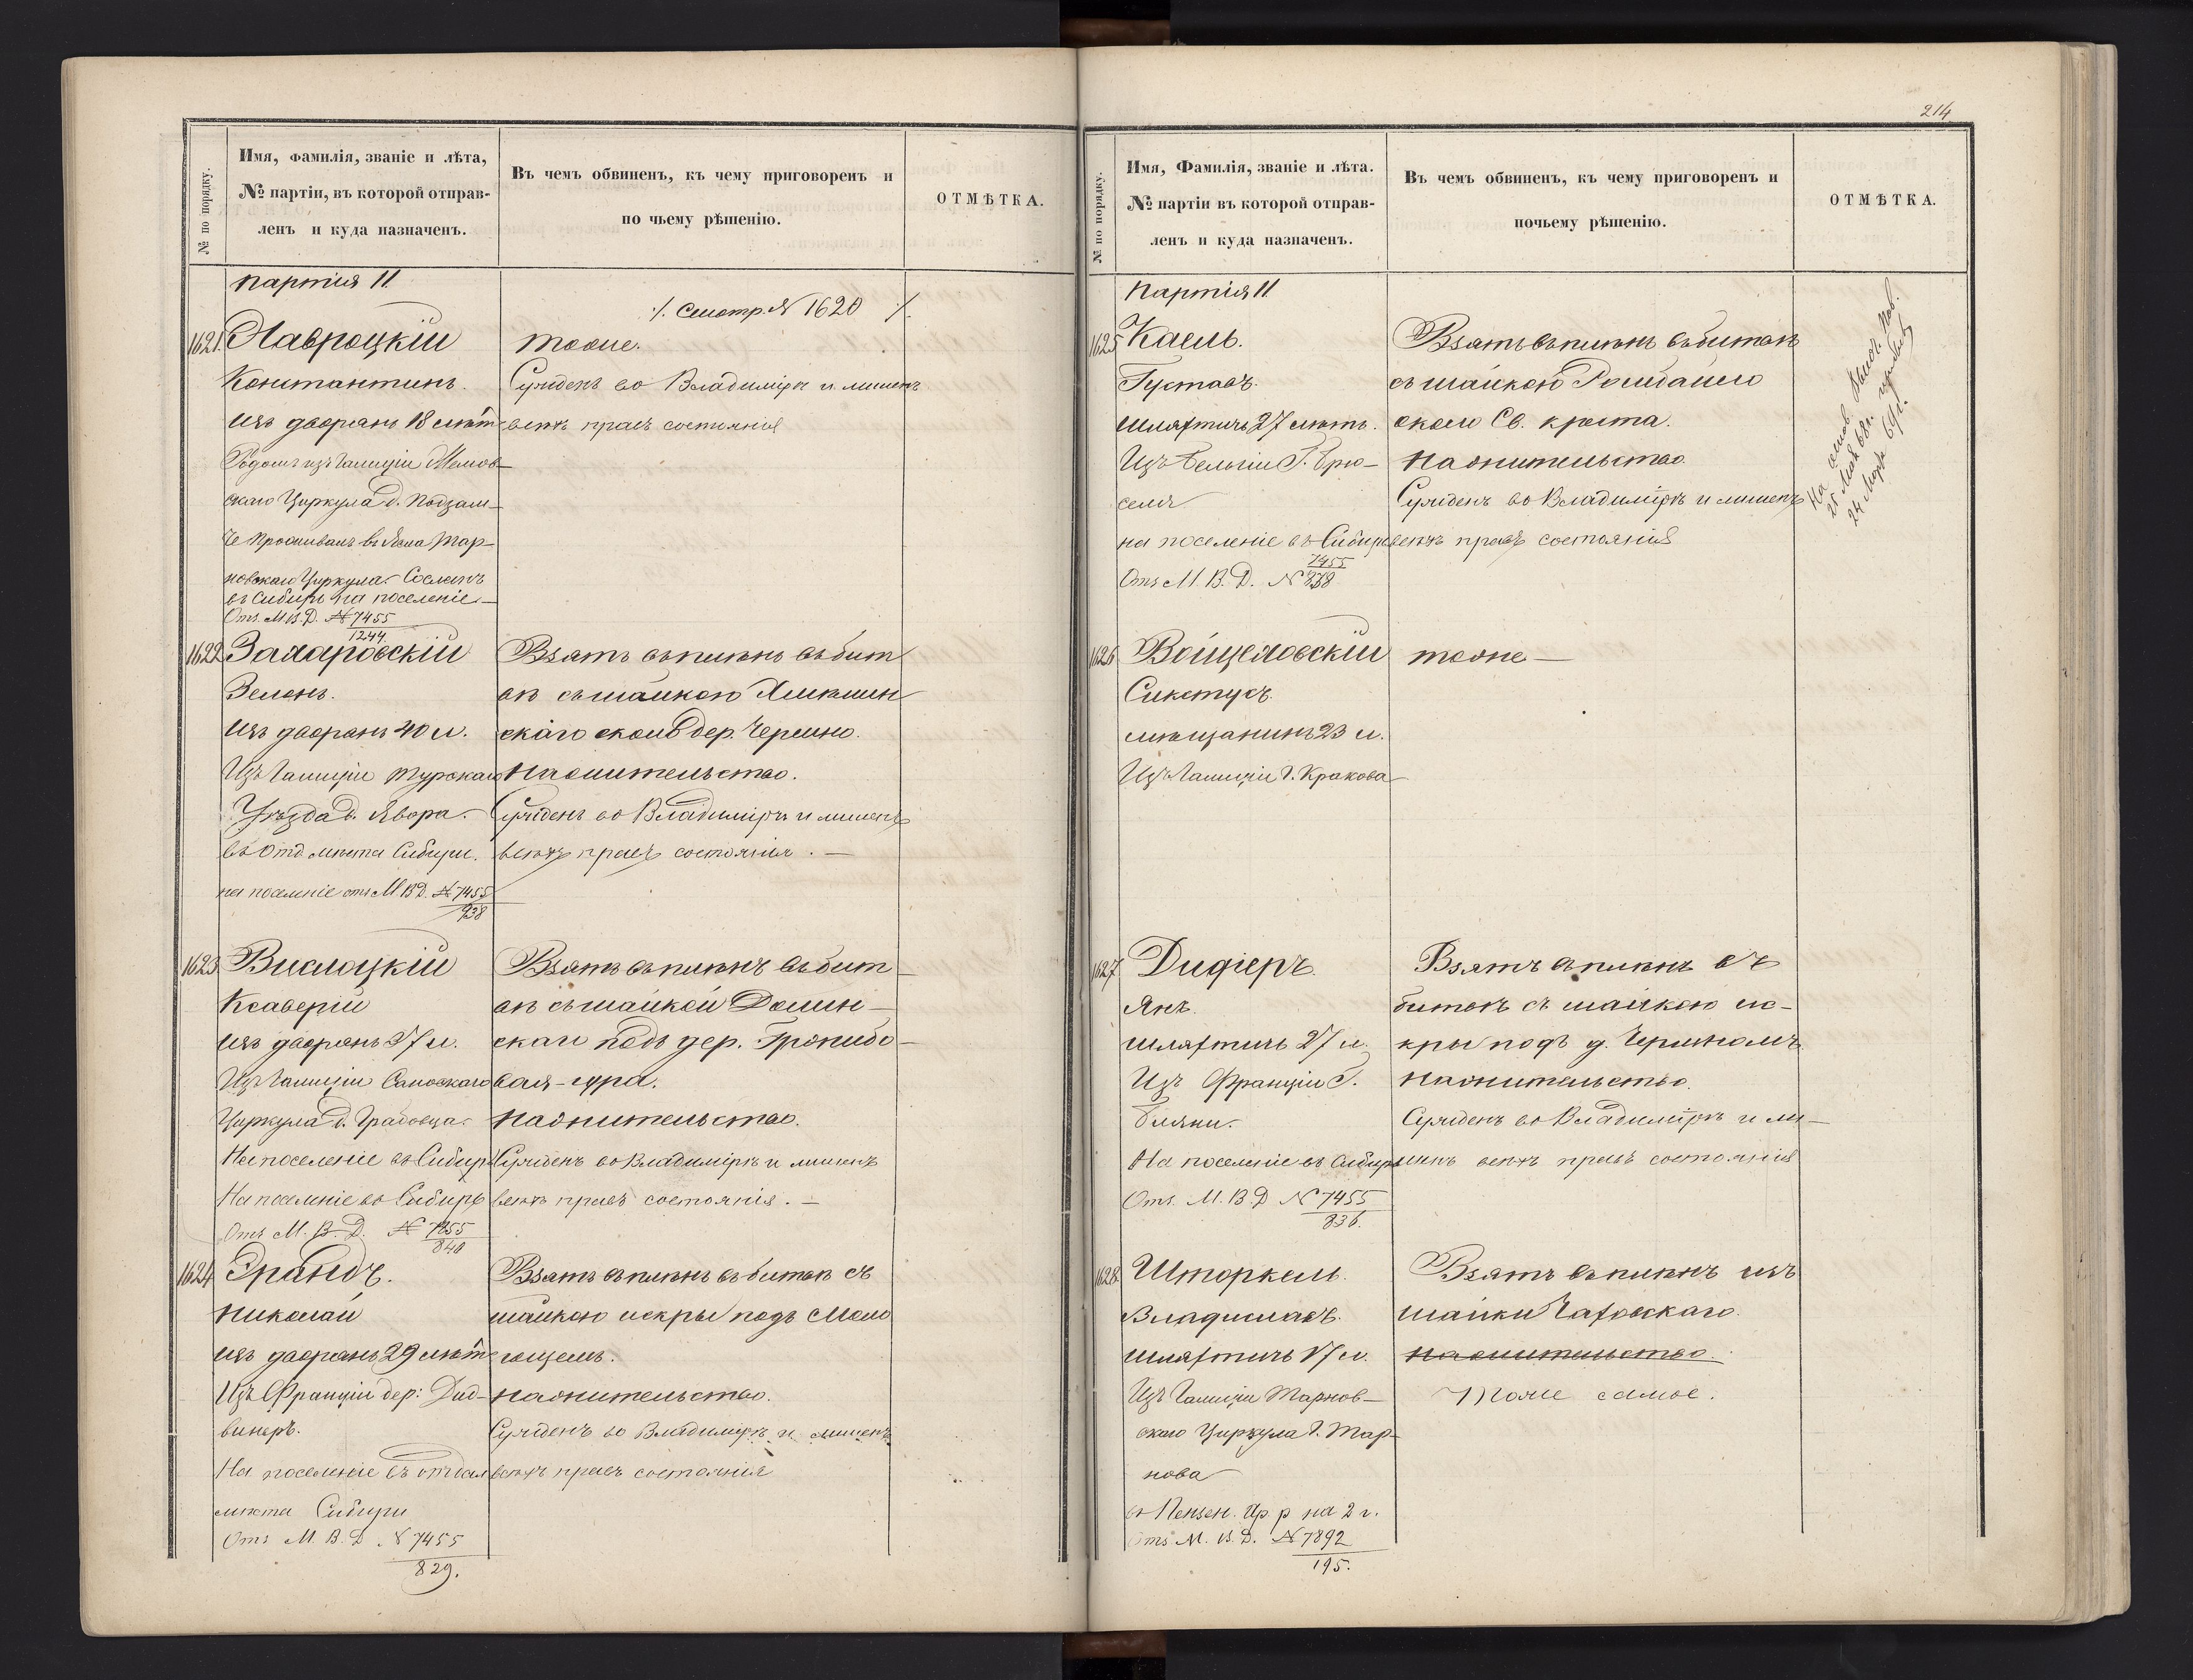 № по порядку.
Имя, фамилія, званіе и лѣта,
№ партіи, въ которой отправ-
ленъ и куда назначенъ.
Въ чемъ обвиненъ, къ чему приговоренъ и
по чьему рѣшенію.
ОТМѢТКА.
Партія 11
·/. Смотр. № 1620 ·/.
1621. Лавроцкій
Константинъ.
Изъ дворянъ 18 лѣт
Родомъ изъ Галиціи
скаго Циркула д. Подзам-
че Проживалъ въ Тар-
новскаго Циркула. Сосланъ
въ Сибирь на поселеніе
Отъ М.В.Д. № 7455
1244.
тоже.
Сужденъ во Владимірѣ и лишенъ
всѣхъ правъ состоянія
1622 Захаровскій
Зенонъ.
Изъ дворянъ 40 л.
Изъ Галиціи Турскаго
Уѣзда д. Явора.
въ Отд мѣста Сибири.
на поселеніе отъ М В Д. № 7455
938
Взятъ въ плѣнъ въ бит
вѣ съ шайкою
скаго около дер. Чермно.
На жительство.
Сужденъ во Владимірѣ и лишенъ
всѣхъ правъ состоянія. —
1623 Вислоцкій
Ксаверій
Изъ дворянъ 27 л.
Изъ Галиціи Саноскаго
Циркула д. Градовца.
На поселеніе въ Сибирь
На поселеніе во Сибирь
Отъ М. В. Д. № 7455
840
Взятъ въ плѣнъ въ бит
вѣ съ шайкой Домин-
скаго подъ дер.
вая-гура.
На жительство.
Сужденъ во Владимірѣ и лишенъ
всѣхъ правъ состоянія. —
1624 Эрандъ.
Николай
Изъ дворянъ 29 лѣт
Изъ Франціи дер: Дид-
винеръ.
На поселеніе въ отдал
мѣста Сибири
Отъ М. В. Д. № 7455
829.
Взятъ въ плѣнъ въ битвѣ съ
шайкою искры подъ Мало
гощемъ.
На жительство.
Сужденъ во Владимірѣ и лишенъ
всѣхъ правъ состоянія
214
№ по порядку.
Имя, Фамилія, званіе и лѣта.
№ партіи въ которой отправ-
ленъ и куда назначенъ.
Въ чемъ обвиненъ, къ чему приговоренъ и
почьему рѣшенію.
ОТМѢТКА.
Партія 11
1625 Каель.
Густавъ.
Шляхтичъ 27 лѣтъ.
Изъ Бельгіи Г. Брю-
селя
на поселеніе въ Сибирь
Отъ М. В. Д. № 7455
838
Взятъ въ плѣнъ въ битвѣ
съ шайкою
около Св. креста.
На жительство
Сужденъ во Владимірѣ и лишенъ
всѣхъ правъ состоянія
На
1626 Войцеховскій
Сикстусъ.
мѣщанинъ 23 л.
Изъ Галиціи Г. Кракова
тоже —
1627 Дидіеръ.
Янъ.
Шляхтичъ 27 л.
Изъ Франціи Г.
На поселеніе въ Сибирь
Отъ. М. В. Д № 7455
836.
Взятъ въ плѣнъ въ
битвѣ съ шайкою ис-
кры подъ д. Чермномъ
На жительство.
Сужденъ во Владимірѣ и ли-
шенъ всѣхъ правъ состоянія
1628 Шторкель.
Владиславъ.
Шляхтичъ 17 л.
Изъ Галиціи Тарнов-
скаго Циркула Г. Тар-
нова
въ Пензен. Ар. р на 2 г.
Отъ М. В. Д. № 7892
195.
Взятъ въ плѣнъ изъ
шайки Чаховскаго.
На жительство.
Тоже самое.